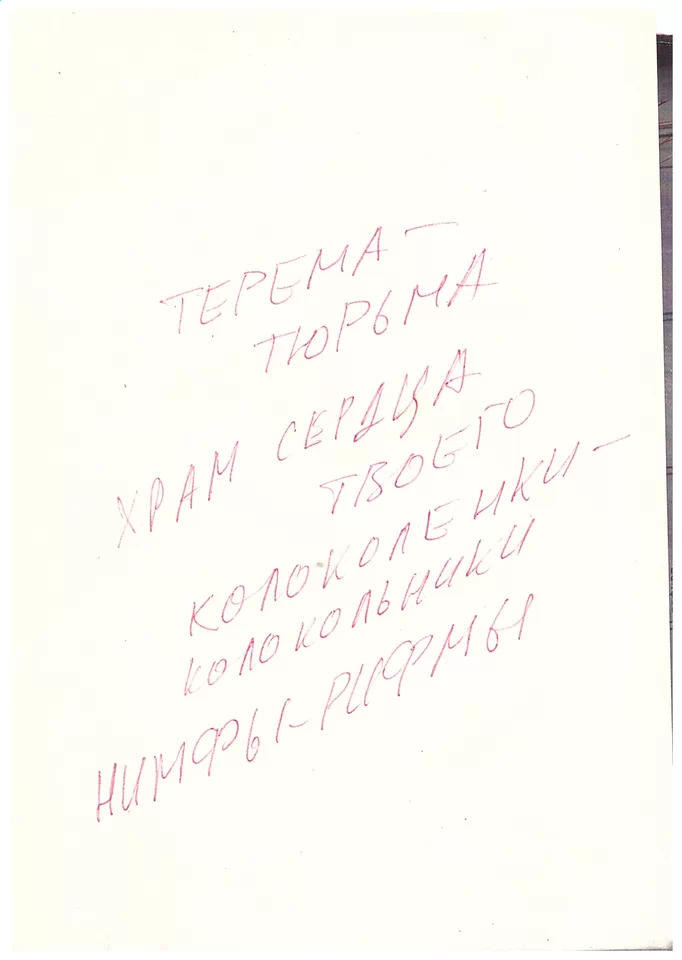 ТЕРЕМА –
ТЮРЬМА
ХРАМ СЕРДЦА
ТВОЕГО
КОЛОКОЛЕНКИ –
КОЛОКОЛЬНИКИ
НИМФЫ-РИФМЫ